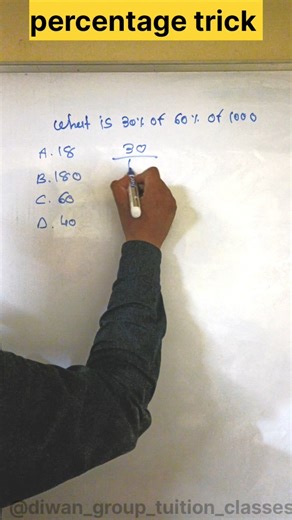 percentage trick
What is 30% of 60% of 1000
A. 18
30
B. 180
C. 60
D. 40
@diwan_group_tuition_classes